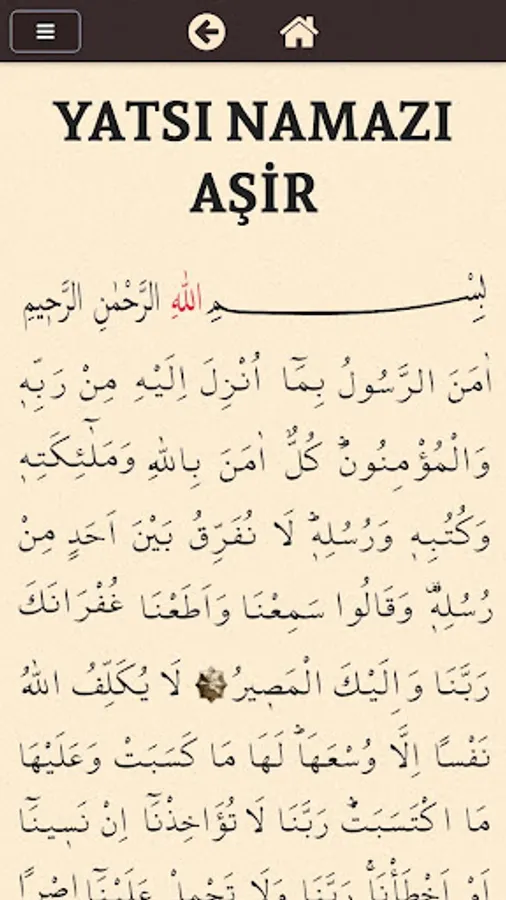 YATSI NAMAZI
AŞİR
بِسْمِ اللّٰهِ الرَّحْمٰنِ الرَّحٖيمِ
اٰمَنَ الرَّسُولُ بِمَٓا اُنْزِلَ اِلَيْهِ مِنْ رَبِّهٖ
وَالْمُؤْمِنُونَؕ كُلٌّ اٰمَنَ بِاللّٰهِ وَمَلٰٓئِكَتِهٖ
وَكُتُبِهٖ وَرُسُلِهٖؕ لَا نُفَرِّقُ بَيْنَ اَحَدٍ مِنْ
رُسُلِهٖࣞ وَقَالُوا سَمِعْنَا وَاَطَعْنَا غُفْرَانَكَ
رَبَّنَا وَاِلَيْكَ الْمَصٖيرُ لَا يُكَلِّفُ اللّٰهُ
نَفْسًا اِلَّا وُسْعَهَاؕ لَهَا مَا كَسَبَتْ وَعَلَيْهَا
مَا اكْتَسَبَتْؕ رَبَّنَا لَا تُؤَاخِذْنَٓا اِنْ نَسٖينَٓا
اَوْ اَخْطَأْنَاۚ رَبَّنَا وَلَا تَحْمِلْ عَلَيْنَٓا اِصْرًا